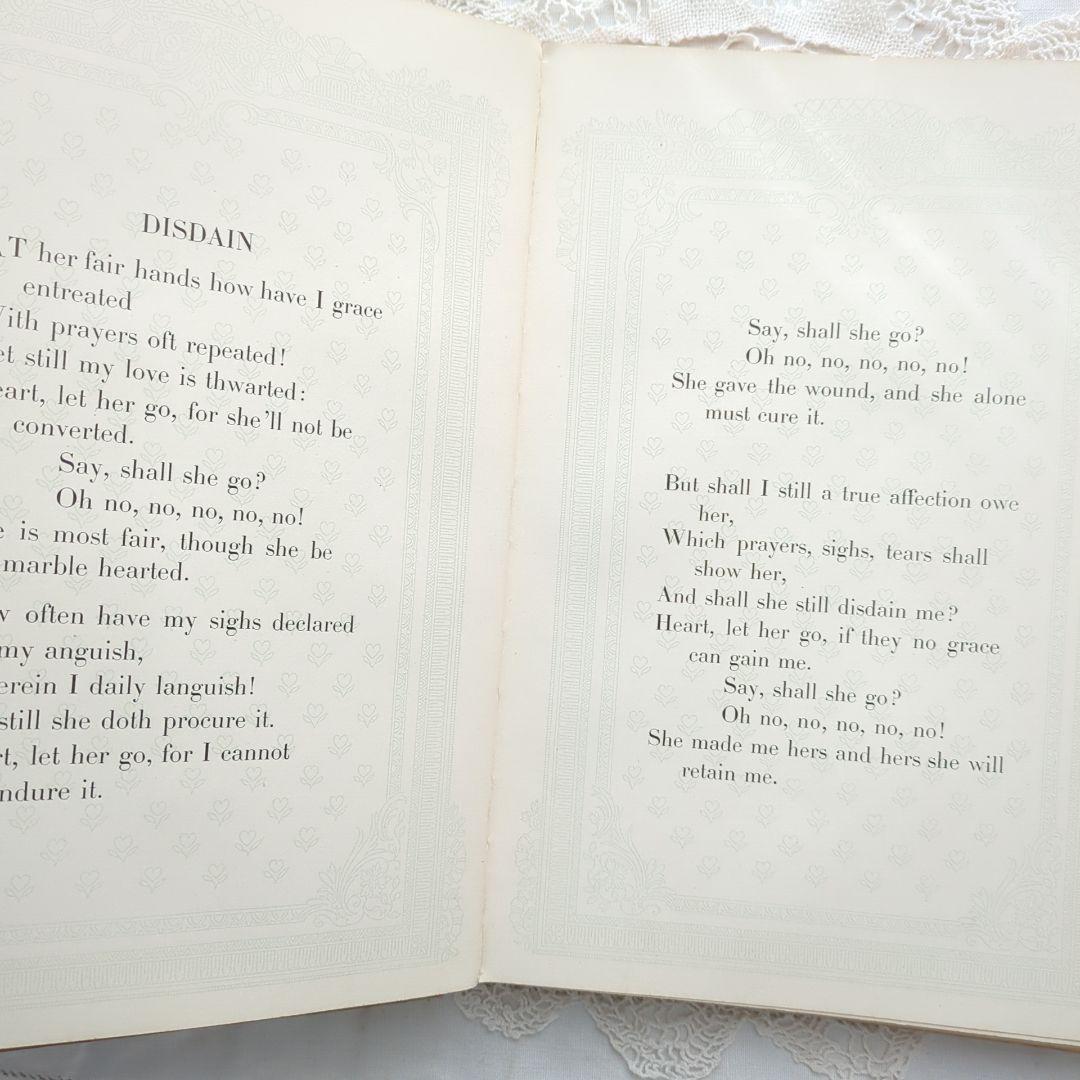 DISDAIN
AT her fair hands how have I grace
entreated
With prayers oft repeated!
et still my love is thwarted:
eart, let her go, for she'll not be
converted.
Say, shall she go?
Oh no, no, no, no, no!
e is most fair, though she be
marble hearted.
w often have my sighs declared
my anguish,
erein I daily languish!
still she doth procure it.
rt, let her go, for I cannot
ndure it.
Say, shall she go?
Oh no, no, no, no, no!
She gave the wound, and she alone
must cure it.
But shall I still a true affection owe
her,
Which prayers, sighs, tears shall
show her,
And shall she still disdain me?
Heart, let her go, if they no grace
can gain me.
Say, shall she go?
Oh no, no, no, no, no!
She made me hers and hers she will
retain me.